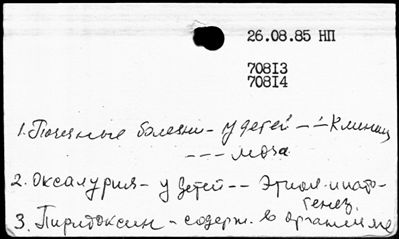 26.08.85 НП
70813
70814
1. Почечные болезни - у детей -- Клиника
--- моча
2. Оксалурия - у детей -- Этиол. и пато-
генез.
3. Пиридоксин - содерж. в организме